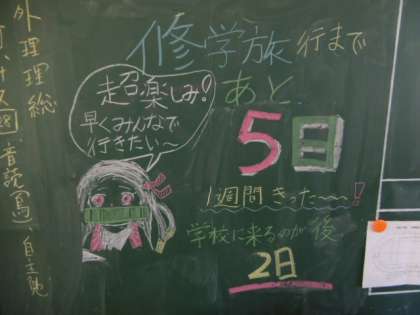 修学旅行まで
あと
5日
1週間きった〜〜〜!
学校に来るのが後
2日
超楽しみ!
早くみんなで
行きたい〜
外理理総
音読